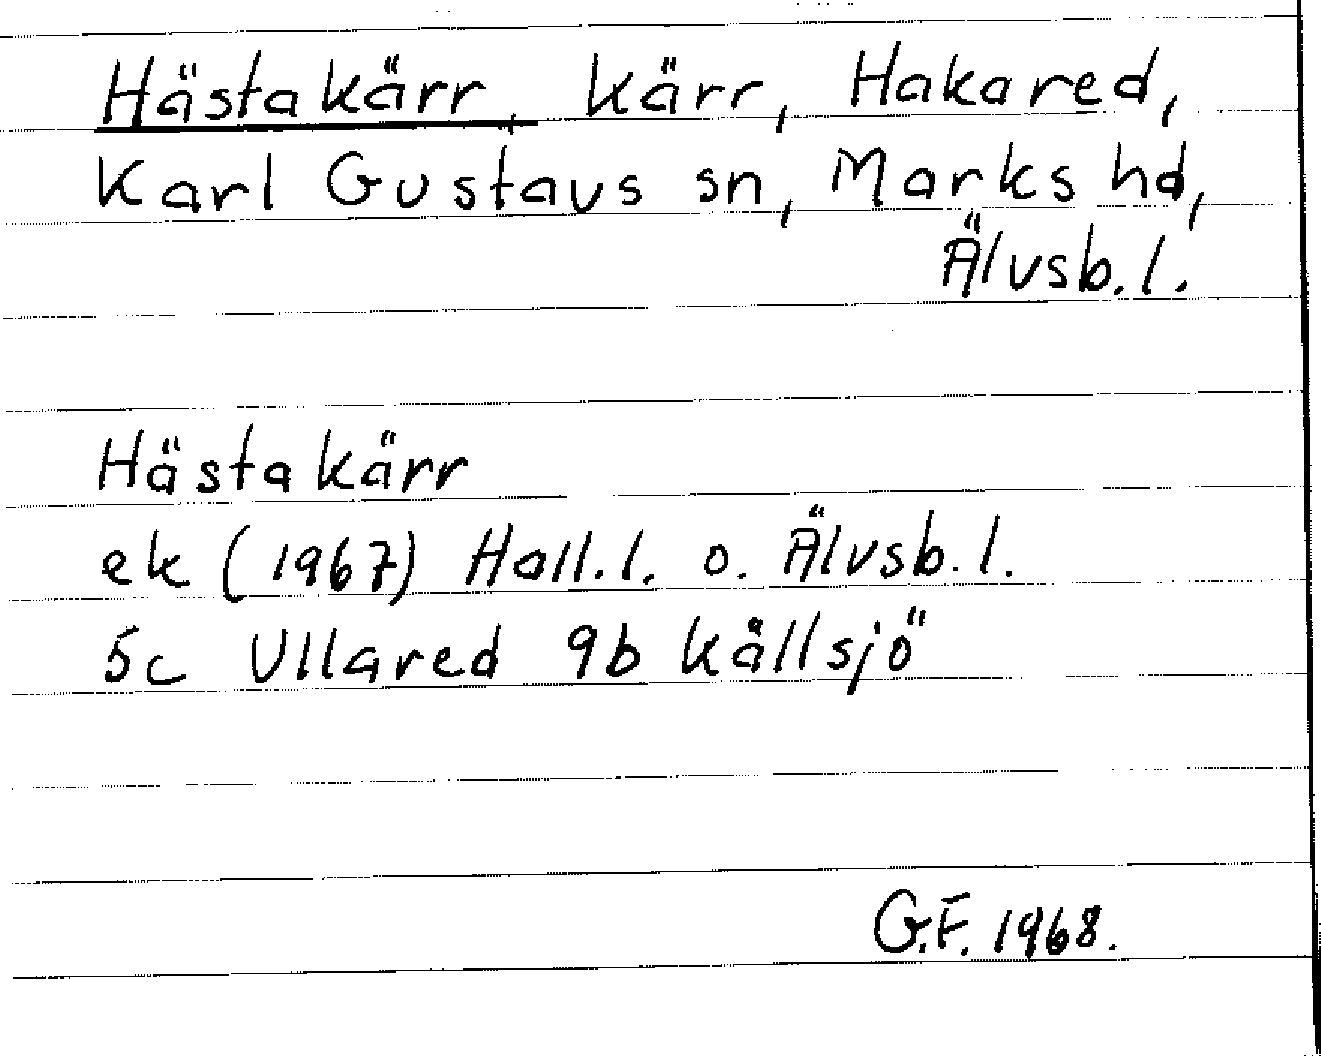 Hästakärr, kärr, Hakared,
Karl Gustavs sn, Marks hd,
Älvsb. l.
Hästakärr
ek (1967) Hall. l. o. Älvsb. l.
5c Ullared 9b Källsjö
G.F. 1968.